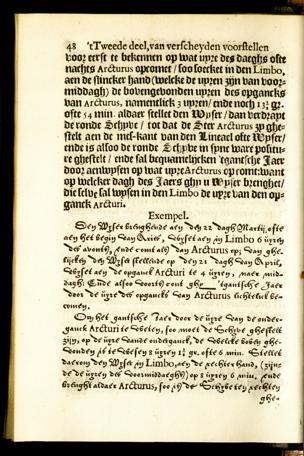 48 'tTweede deel, van verscheyden voorstellen
voor eerst te bekennen op wat uyre des daeghs ofte
nachts Arcturus opcomet / soo soecket in den Limbo,
aen de slincker hand (welcke de uyren zijn van voor-
middagh) de bovengevonden uyren des opgancks
van Arcturus, namentlick 3 uyren / ende noch 13 gr.
ofte 54 min. aldaer stellet den Wyser / dan verdrayt
de ronde Schyve / tot dat de Ster Arcturus zy ghe-
stelt aen de mes-kant van den Lineael ofte Wyser /
ende is alsoo de ronde Schyve in syne ware positu-
re ghestelt / ende sal bequamelijcken 'tgantsche Jaer
door aenwysen op wat uyre Arcturus op comt: want
op welcker dagh des Jaers ghy u Wyser brenghet /
die selve sal wysen in den Limbo de uyre van den op-
ganck Arcturi.
Exempel.
Den Wyser brenghende aen den 22 dagh Martij, ofte
aen het begin van Aries, wyset aen in Limbo 6 uyren
des avonts, ende comt als dan Arcturus op; van ghe-
lijcken den Wyser stellende op den 21 dagh van April,
wyset aen de opganck Arcturi te 4 uyren, naer mid-
dagh: Ende alsoo voorts cont ghy 'tgantsche Jaer
door de uyre des opgancks van Arcturus lichtelick be-
comen.
Om het gantsche Jaer door de uyre van de onder-
ganck Arcturi te weten, soo moet de Schyve ghestelt
zijn, op de uyre vande onderganck, de welcke boven ghe-
vonden is te wesen 8 uyren 1½ gr. ofte 6 min. Stellet
daerom den Wyser in Limbo, aen de rechter hand, (zijn-
de de uyren des voormiddaeghs) op 8 uyren 6 min. ende
brenght aldaer Arcturus, soo is de Schyve ten rechten
ghe-